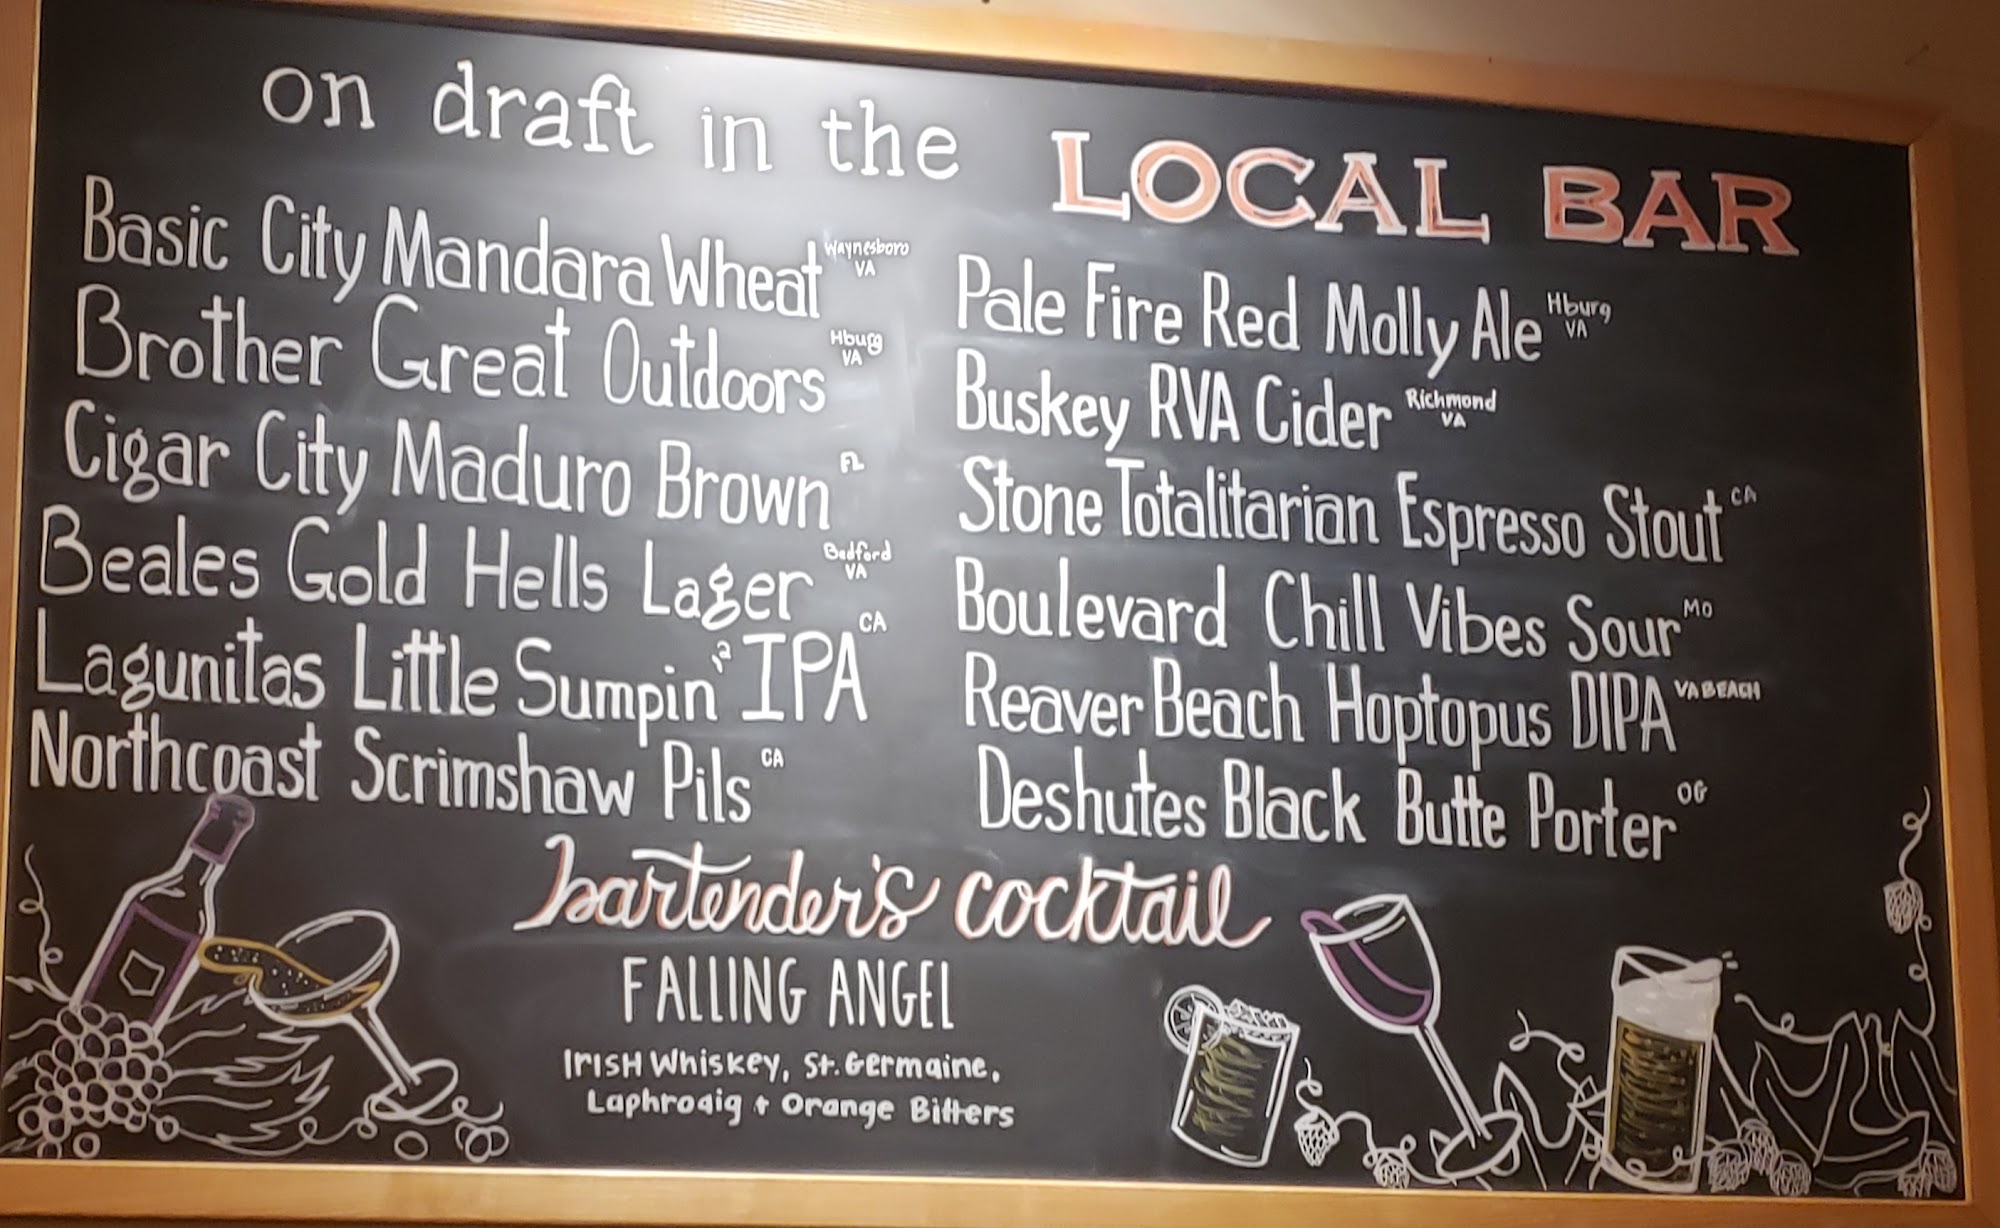 on draft in the LOCAL BAR
Basic City Mandara Wheat Waynesboro VA
Brother Great Outdoors Hburg VA
Cigar City Maduro Brown FL
Beales Gold Hells Lager Bedford VA
Lagunitas Little Sumpin' IPA CA
Northcoast Scrimshaw Pils CA
Pale Fire Red Molly Ale Hburg VA
Buskey RVA Cider Richmond VA
Stone Totalitarian Espresso Stout CA
Boulevard Chill Vibes Sour MO
Reaver Beach Hoptopus DIPA VA BEACH
Deshutes Black Butte Porter OG
bartender's cocktail
FALLING ANGEL
Irish Whiskey, St. Germaine,
Laphroaig + Orange Bitters